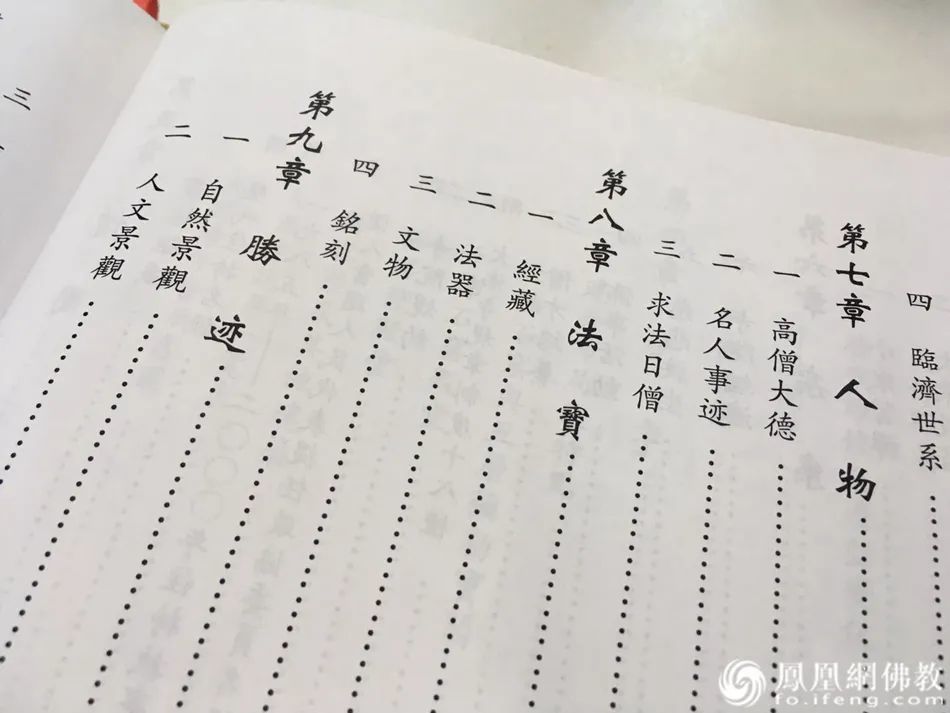 四 臨濟世系
第七章 人物
一 高僧大德
二 名人事迹
三 求法日僧
第八章 法寶
一 經藏
二 法器
三 文物
四 銘刻
第九章 勝迹
一 自然景觀
二 人文景觀
三
鳳凰網佛教
fo.ifeng.com